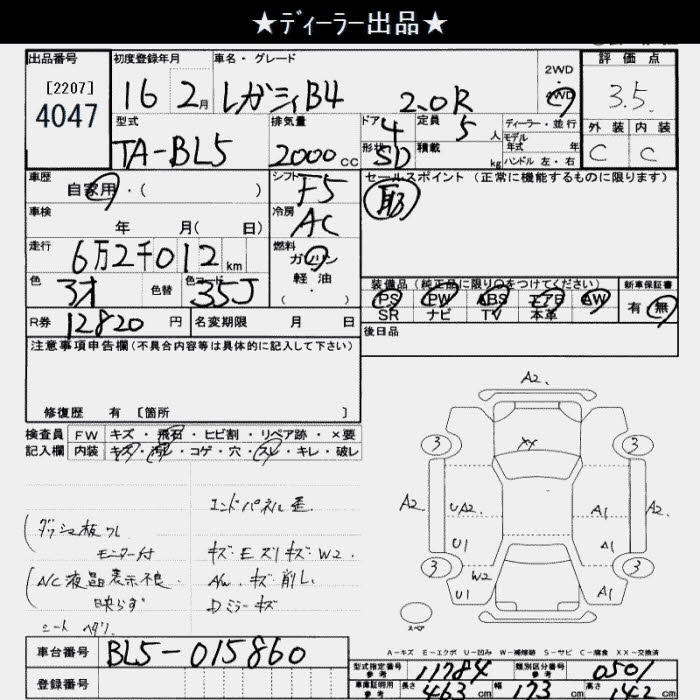 ★ディーラー出品★
出品番号
[2207]
4047
初度登録年月
16 2月
車名・グレード
レガシィB4 2.0R
2WD
・
4WD
評価点
3.5
外装 内装
C C
型式
TA-BL5
排気量
2000cc
ドア 4
形状 SD
定員 5人
積載 kg
ディーラー・並行
モデル年式 年
ハンドル 左・右
車歴
自家用・( )
シフト F5
セールスポイント (正常に機能するものに限ります)
車検
年 月( 日)
冷房 AC
走行
6万2千012km
燃料
ガソリン
軽油
( ・ )
色
色替
色コード 35J
装備品(純正品に限り○をつけてください) 新車保証書
PS PW ABS エアB AW 有・無
SR ナビ TV 本革
R券 12820円 名変期限 月 日
後日品
注意事項申告欄(不具合内容等は具体的に記入して下さい)
修復歴 有 [箇所 ]
検査員 FW キズ・飛石・ヒビ割・リペア跡・×要
記入欄 内装 キズ・汚レ・コゲ・穴・スレ・キレ・破レ
エンドパネル歪
ダッシュ板ワレ
モニター付
キズ・エズリキズ・W2.
A/C液晶表示不良
映らず
AW キズ 削レ
Dミラーキズ
シート ヘタリ
A2.
3 3
XX
A2 UA2. A1 A2
U1 A1
3 3
W2
U1 A1
スペア
A-キズ E-エクボ U-凹み W-補修跡 S-サビ C-腐食 XX-交換済
車台番号 BL5-015860
登録番号
型式指定番号 参考 11784 類別区分番号 参考 0501
車庫証明用 参考 長さ 463cm 幅 173cm 高さ 142cm